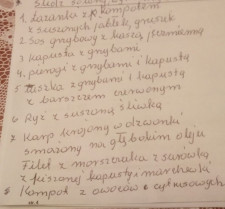 1. Łazanki z kompotem
z suszonych jabłek, gruszek
2. Sos grzybowy z kaszą jęczmienną
3 kapusta z grzybami
4. pierogi z grzybami i kapustą
5 z grzybami i kapustą
z barszczem czerwonym
6 Ryż z suszoną śliwką
7 Karp krojony w dzwonki
smażony na głębokim oleju
Filet z morszczuka z surówką
z kiszonej kapusty i marchewki
8 Kompot z owoców cytrusowych